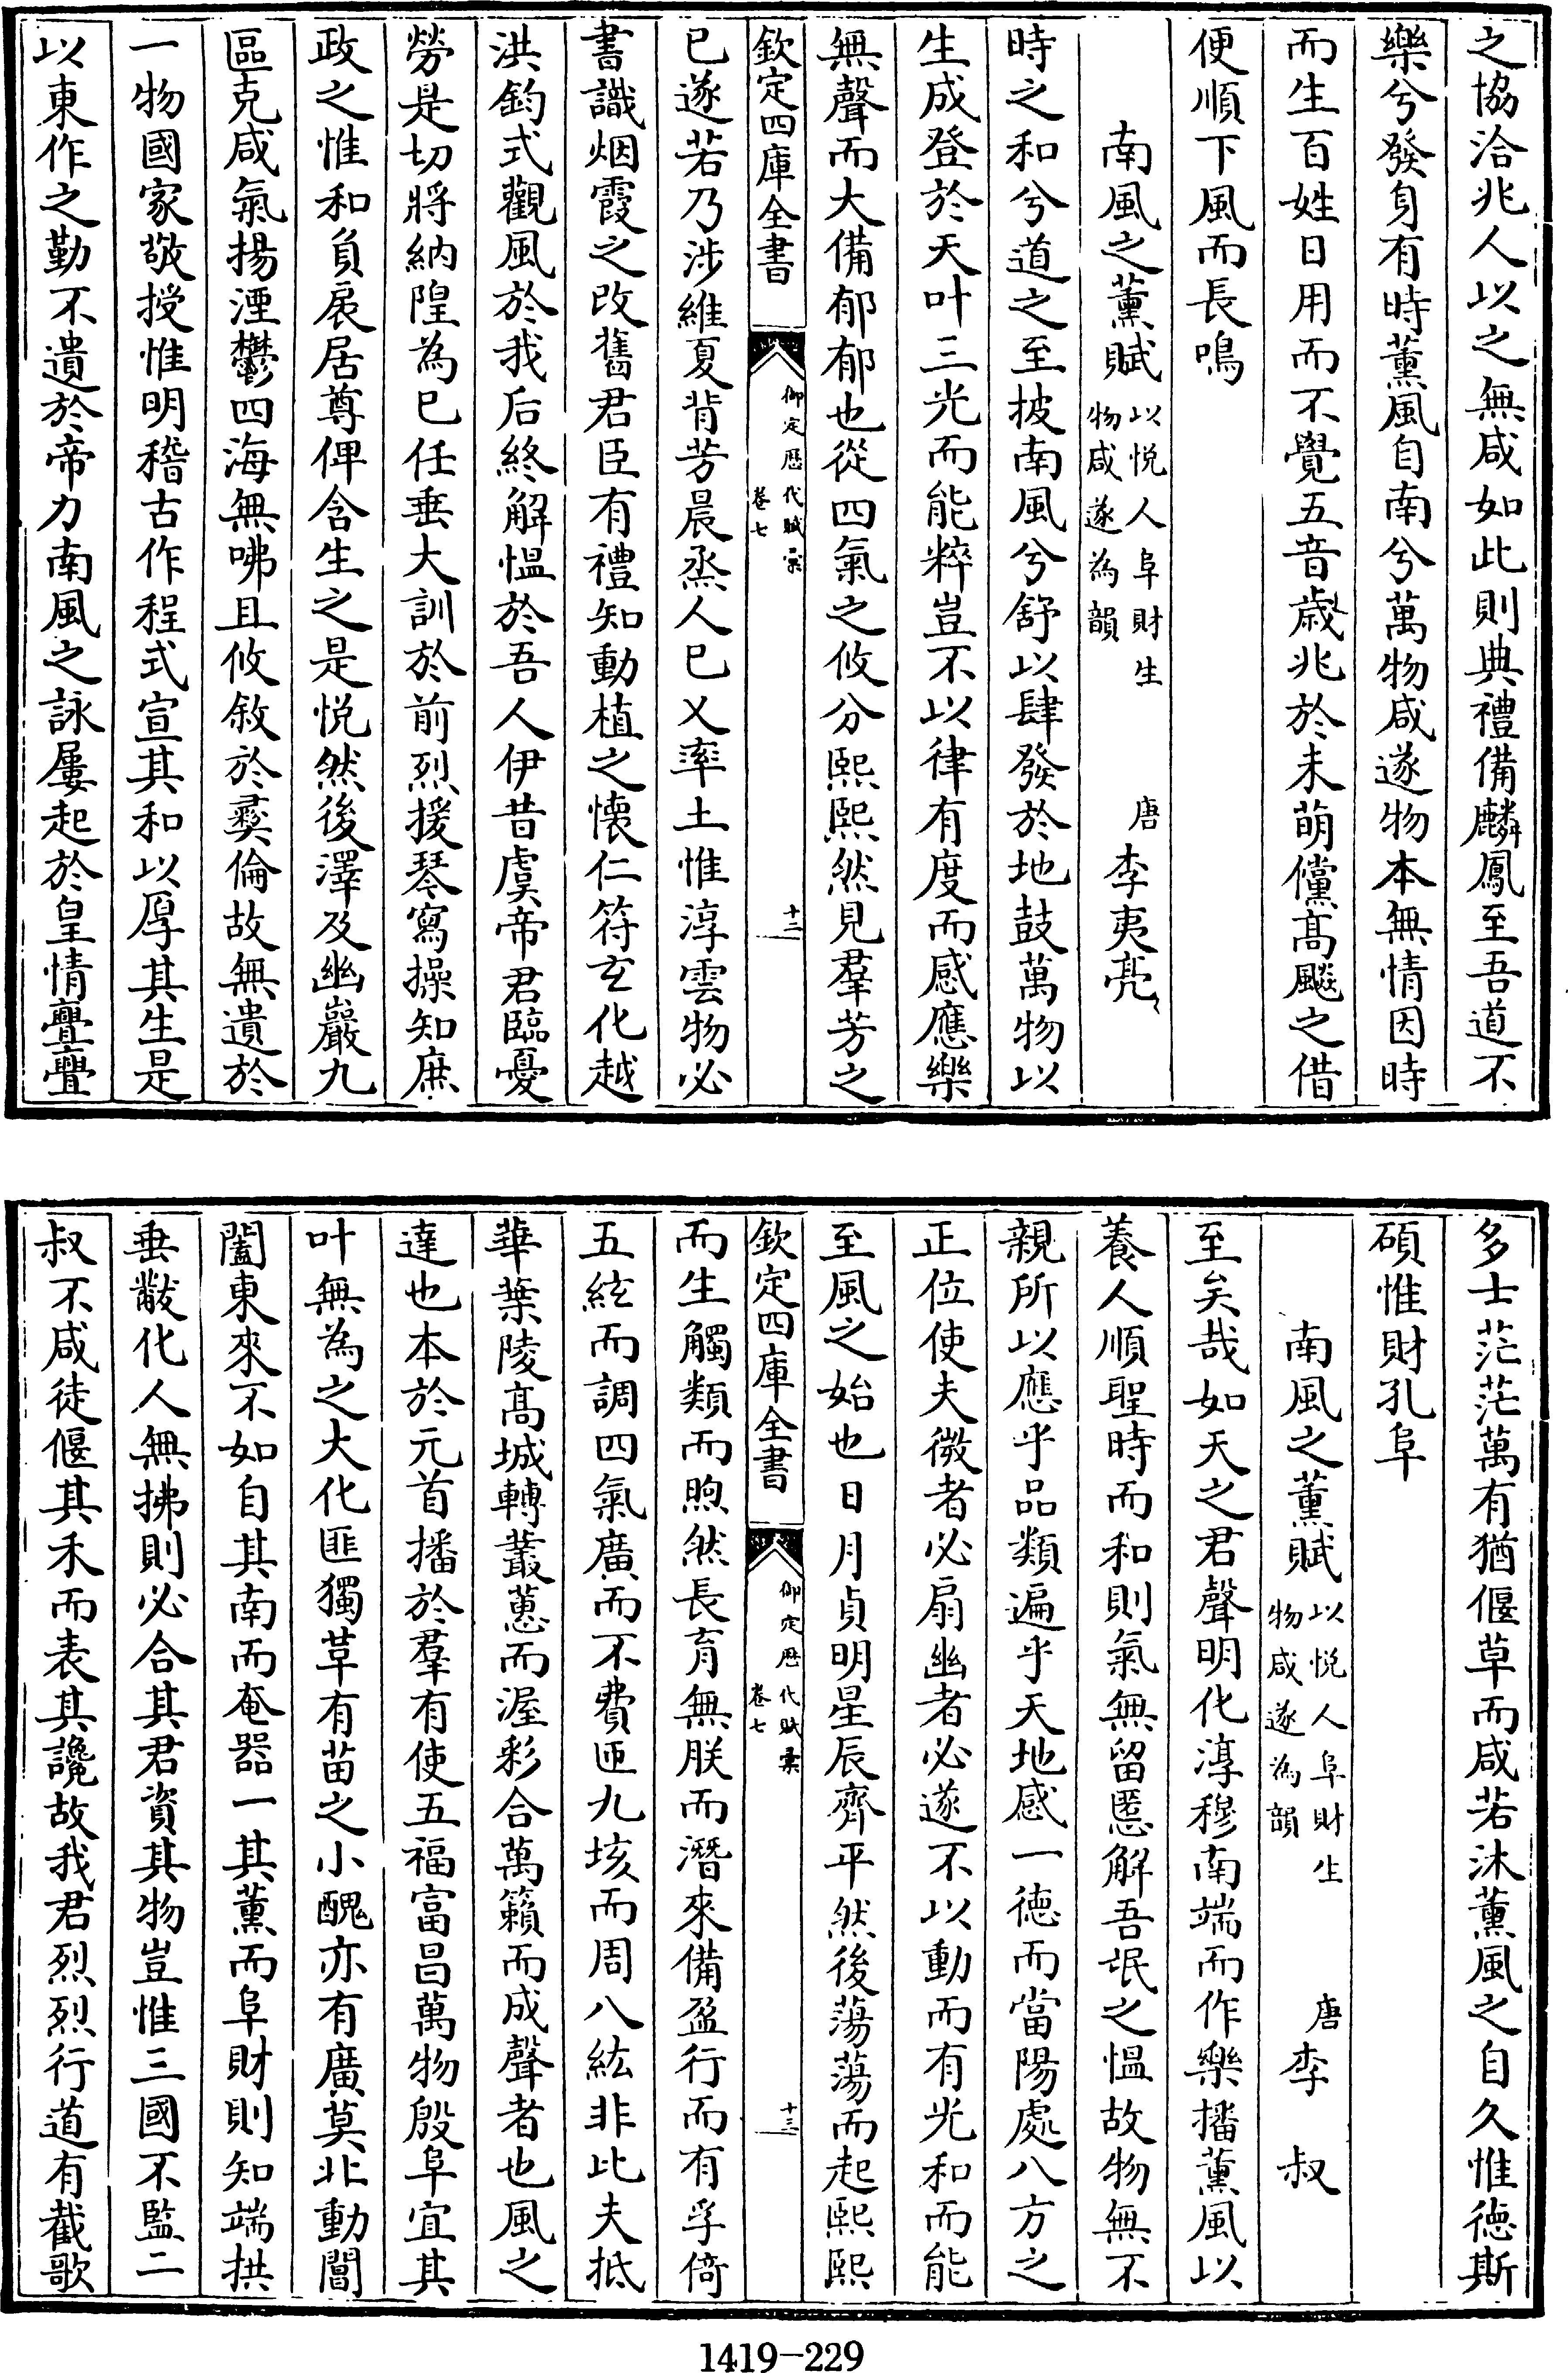 之協洽兆人以之無咸如此則典禮備麟鳳至吾道不
樂兮發身有時薰風自南兮萬物咸遂物本無情因時
而生百姓日用而不覺五音歳兆於未萌儻髙飈之借
便順下風而長鳴
南風之薰賦以悦人阜財生物咸遂為韻 唐 李夷亮
時之和兮道之至披南風兮舒以肆發於地鼓萬物以
生成登於天叶三光而能粹豈不以律有度而感應樂
無聲而大備郁郁也從四氣之攸分熙熙然見羣芳之
欽定四庫全書 御定歴代賦彙 卷七 十二
已遂若乃涉維夏背芳晨烝人已乂率土惟淳雲物必
書識烟霞之改舊君臣有禮知動植之懐仁符玄化越
洪鈞式觀風於我后終解愠於吾人伊昔虞帝君臨憂
勞是切將納隍為已任垂大訓於前烈援琴寫操知庶
政之惟和負扆居尊俾含生之是悦然後澤及幽巖九
區克咸氣揚湮鬱四海無咈且攸敘於彛倫故無遺於
一物國家敬授惟明稽古作程式宣其和以厚其生是
以東作之勤不遺於帝力南風之詠屢起於皇情亹亹
多士茫茫萬有猶偃草而咸若沐薰風之自久惟徳斯
碩惟財孔阜
南風之薰賦以悦人阜財生物咸遂為韻 唐 李 叔
至矣哉如天之君聲明化淳穆南端而作樂播薰風以
養人順聖時而和則氣無留慝解吾氓之愠故物無不
親所以應乎品類遍乎天地感一徳而當陽處八方之
正位使夫微者必扇幽者必遂不以動而有光和而能
至風之始也日月貞明星辰齊平然後蕩蕩而起熙熙
欽定四庫全書 御定歴代賦彙 卷七 十三
而生觸類而煦然長育無朕而潛來備盈行而有孚倚
五絃而調四氣廣而不費匝九垓而周八紘非比夫抵
華葉陵髙城轉叢蕙而渥彩合萬籟而成聲者也風之
達也本於元首播於羣有使五福富昌萬物殷阜宜其
叶無為之大化匪獨草有苗之小醜亦有廣莫北動閶
闔東來不如自其南而奄器一其薰而阜財則知端拱
垂黻化人無拂則必合其君資其物豈惟三國不監二
叔不咸徒偃其禾而表其讒故我君烈烈行道有截歌
1419-229